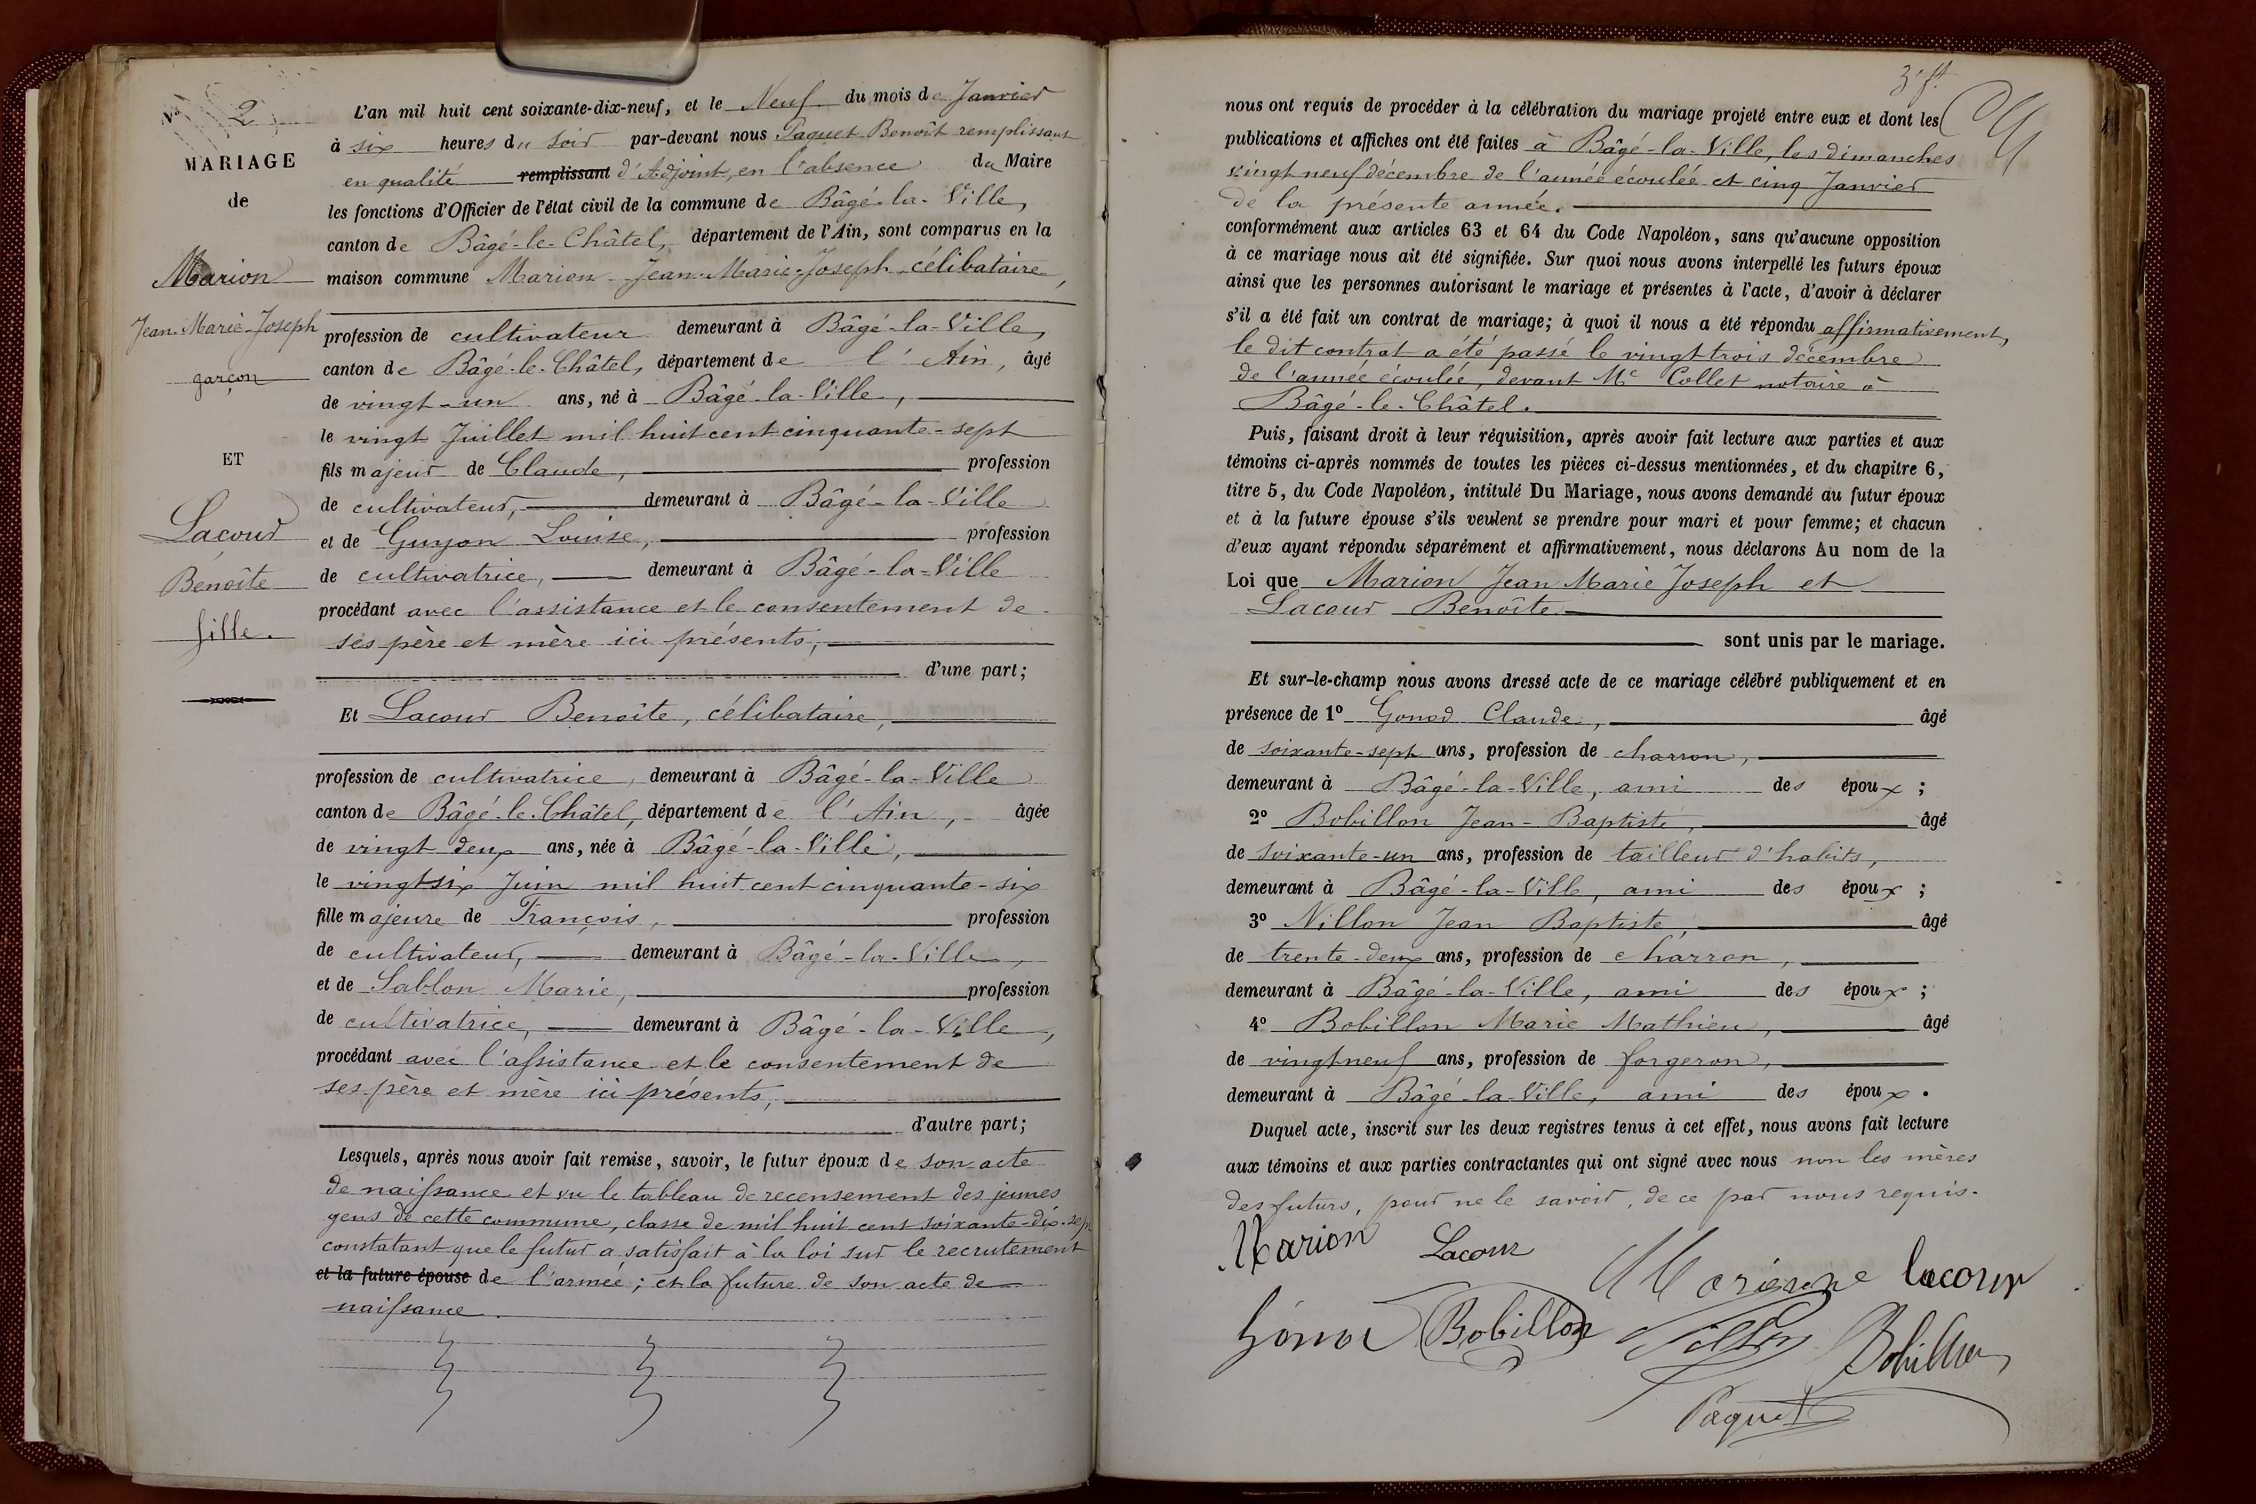 N° 2
MARIAGE
de
Marion
Jean-Marie-Joseph
garçon
ET
Lacour
Benoîte
fille.
L'an mil huit cent soixante-dix-neuf, et le Neuf du mois de Janvier
à six heures du soir par-devant nous Paquet Benoît remplissant
en qualité remplissant d'Adjoint, en l'absence du Maire
les fonctions d'Officier de l'état civil de la commune de Bâgé-la-Ville,
canton de Bâgé-le-Châtel, département de l'Ain, sont comparus en la
maison commune Marion Jean-Marie-Joseph célibataire,
profession de cultivateur demeurant à Bâgé-la-Ville,
canton de Bâgé-le-Châtel, département de l'Ain, âgé
de vingt-un ans, né à Bâgé-la-Ville,
le vingt Juillet mil huit cent cinquante-sept
fils majeur de Claude, profession
de cultivateur, demeurant à Bâgé-la-Ville
et de Guyon Louise, profession
de cultivatrice, demeurant à Bâgé-la-Ville
procédant avec l'assistance et le consentement de
ses père et mère ici présents,
d'une part;
Et Lacour Benoîte, célibataire,
profession de cultivatrice, demeurant à Bâgé-la-Ville
canton de Bâgé-le-Châtel, département de l'Ain, âgée
de vingt deux ans, née à Bâgé-la-Ville,
le vingt six Juin mil huit cent cinquante-six
fille majeure de François, profession
de cultivateur, demeurant à Bâgé-la-Ville,
et de Sablon Marie, profession
de cultivatrice, demeurant à Bâgé-la-Ville,
procédant avec l'assistance et le consentement de
ses père et mère ici présents,
d'autre part;
Lesquels, après nous avoir fait remise, savoir, le futur époux de son acte
de naissance et vu le tableau de recensement des jeunes
gens de cette commune, classe de mil huit cent soixante-dix-sept
constatant que le futur a satisfait à la loi sur le recrutement
et la future épouse de l'armée; et la future de son acte de
naissance.
3e ft.
nous ont requis de procéder à la célébration du mariage projeté entre eux et dont les
publications et affiches ont été faites à Bâgé-la-Ville, les dimanches
vingt neuf décembre de l'année écoulée et cinq Janvier
de la présente année.
conformément aux articles 63 et 64 du Code Napoléon, sans qu'aucune opposition
à ce mariage nous ait été signifiée. Sur quoi nous avons interpellé les futurs époux
ainsi que les personnes autorisant le mariage et présentes à l'acte, d'avoir à déclarer
s'il a été fait un contrat de mariage; à quoi il nous a été répondu affirmativement,
le dit contrat a été passé le vingt trois décembre
de l'année écoulée, devant Me Collet notaire à
Bâgé-le-Châtel.
Puis, faisant droit à leur réquisition, après avoir fait lecture aux parties et aux
témoins ci-après nommés de toutes les pièces ci-dessus mentionnées, et du chapitre 6,
titre 5, du Code Napoléon, intitulé Du Mariage, nous avons demandé au futur époux
et à la future épouse s'ils veulent se prendre pour mari et pour femme; et chacun
d'eux ayant répondu séparément et affirmativement, nous déclarons Au nom de la
Loi que Marion Jean Marie Joseph et
Lacour Benoîte
sont unis par le mariage.
Et sur-le-champ nous avons dressé acte de ce mariage célébré publiquement et en
présence de 1° Gonod Claude, âgé
de soixante-sept ans, profession de charron,
demeurant à Bâgé-la-Ville, ami des époux;
2° Bobillon Jean-Baptiste, âgé
de soixante-un ans, profession de tailleur d'habits,
demeurant à Bâgé-la-Ville, ami des époux;
3° Nillon Jean Baptiste, âgé
de trente-deux ans, profession de charron,
demeurant à Bâgé-la-Ville, ami des époux;
4° Bobillon Marie Mathieu, âgé
de vingt neuf ans, profession de forgeron,
demeurant à Bâgé-la-Ville, ami des époux.
Duquel acte, inscrit sur les deux registres tenus à cet effet, nous avons fait lecture
aux témoins et aux parties contractantes qui ont signé avec nous non les mères
des futurs, pour ne le savoir, de ce par nous requis.
Marion Lacour Marion lacour
Gonod Bobillon Nillon Bobillon
Paquet